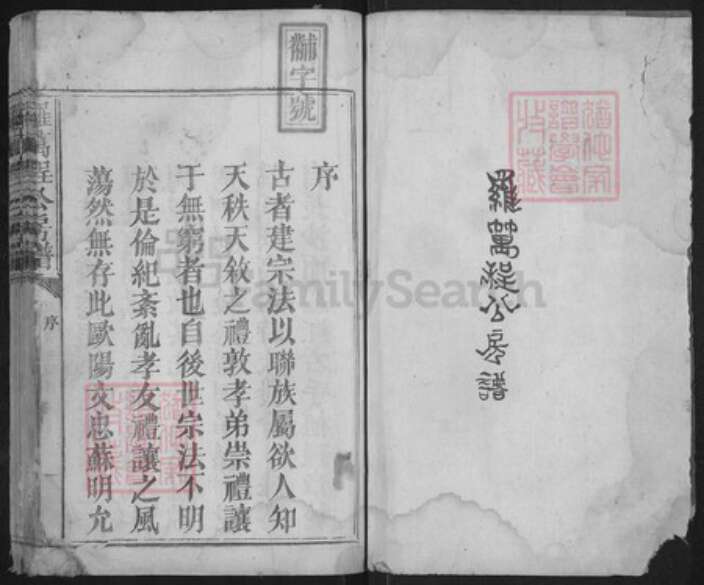 猶他家
譜學會
收藏
羅萬程公房譜
黼字號
序
古者建宗法以聯族屬欲人知
天秩天敘之禮敦孝弟崇禮讓
于無窮者也自後世宗法不明
於是倫紀紊亂孝友禮讓之風
蕩然無存此歐陽文忠蘇明允
猶他家
譜學會
收藏
羅萬程公房譜
序
FamilySearch